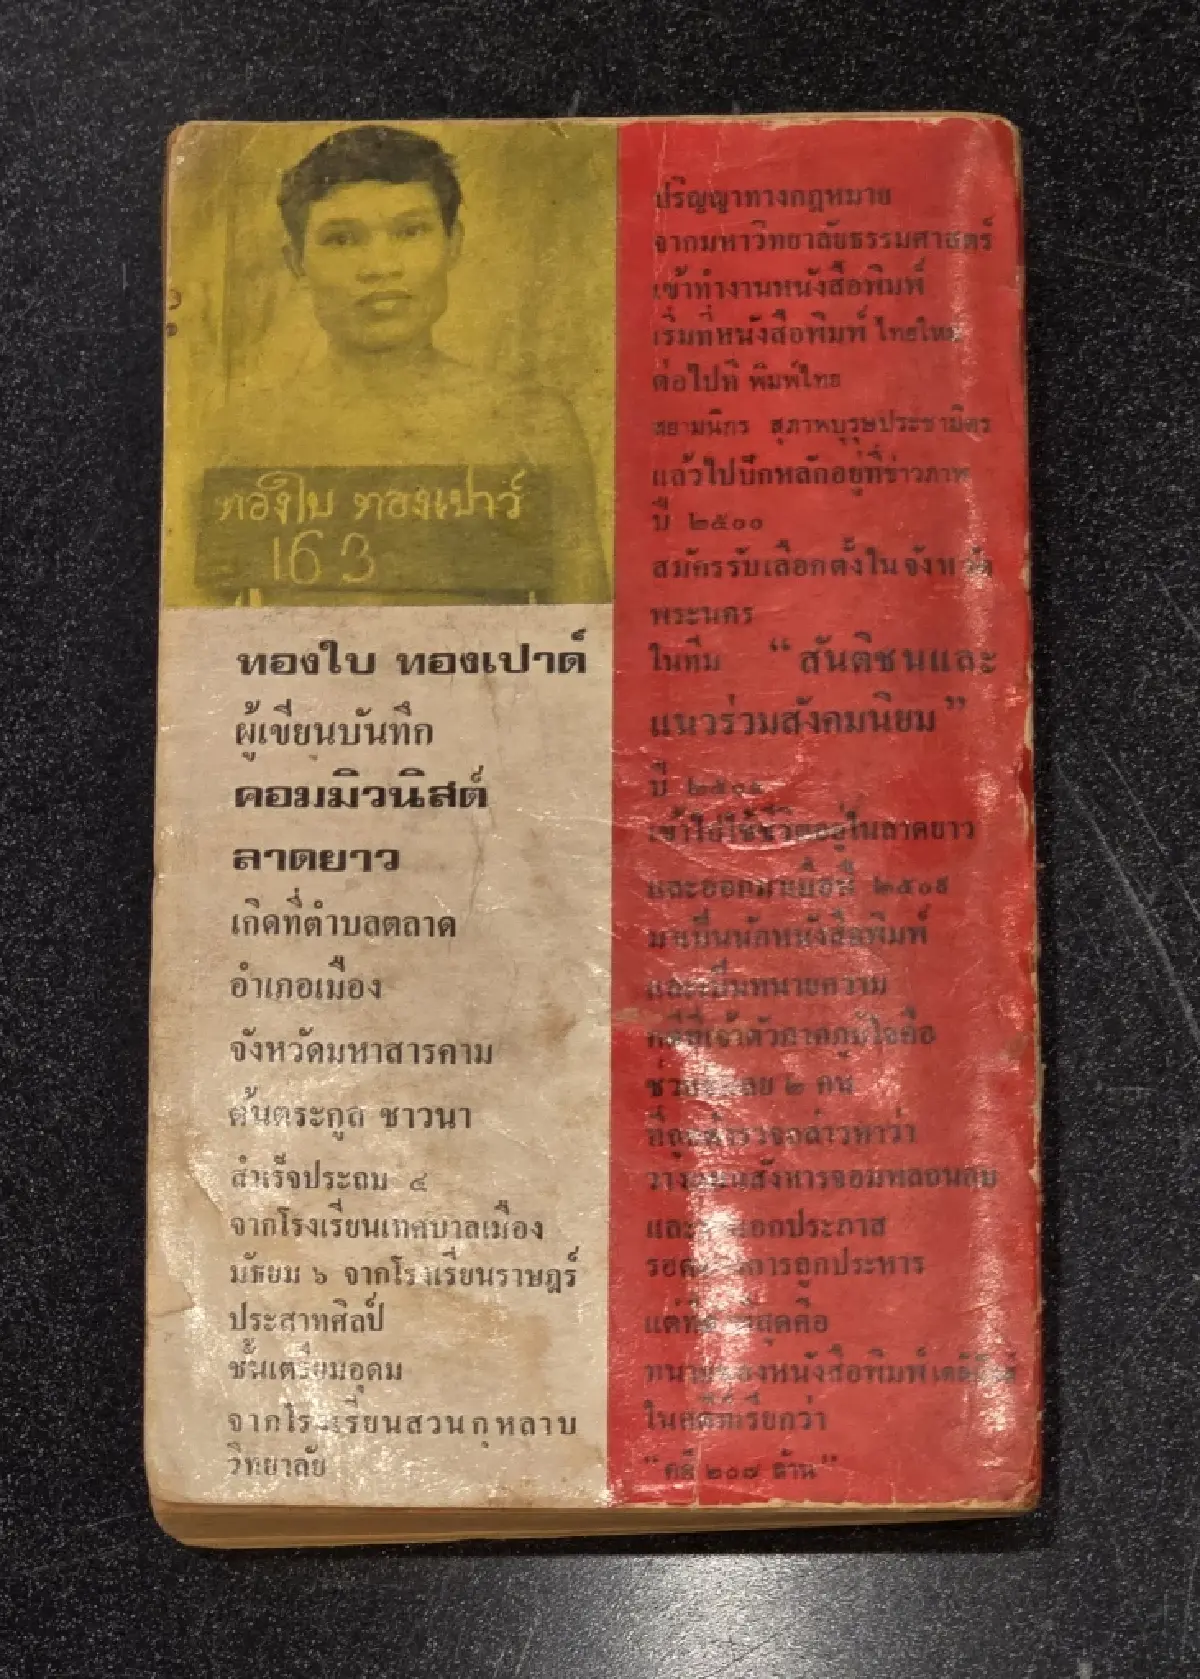 ทองใบ ทองเปาว์
163
ทองใบ ทองเปาด์
ผู้เขียนบันทึก
คอมมิวนิสต์
ลาดยาว
เกิดที่ตำบลตลาด
อำเภอเมือง
จังหวัดมหาสารคาม
ต้นตระกูล ชาวนา
สำเร็จประถม ๔
จากโรงเรียนเทศบาลเมือง
มัธยม ๖ จากโรงเรียนราษฎร์
ประสาทศิลป์
ชั้นเตรียมอุดม
จากโรงเรียนสวนกุหลาบ
วิทยาลัย
ปริญญาทางกฎหมาย
จากมหาวิทยาลัยธรรมศาสตร์
เข้าทำงานหนังสือพิมพ์
เริ่มที่หนังสือพิมพ์ ไทยใหม่
ต่อไปที่ พิมพ์ไทย
สยามนิกร สุภาพบุรุษประชามิตร
แล้วไปปักหลักอยู่ที่ข่าวภาพ
ปี ๒๕๐๐
สมัครรับเลือกตั้งในจังหวัด
พระนคร
ในทีม “สันติชนและ
แนวร่วมสังคมนิยม”
ปี
เข้าไปใช้ชีวิตอยู่ในลาดยาว
และออกมาเมื่อปี ๒๕๐๙
มาเป็นนักหนังสือพิมพ์
และเป็นทนายความ
คดีที่เจ้าตัวภาคภูมิใจคือ
๒ คน
ที่ถูกตำรวจกล่าวหาว่า
วางแผนสังหารจอมพลถนอม
และ ประภาส
รอด การถูกประหาร
แต่ที่ ที่สุดคือ
ทนายของหนังสือพิมพ์เดลินิวส์
ในคดีที่เรียกว่า
“คดี ๒๐๗ ล้าน”